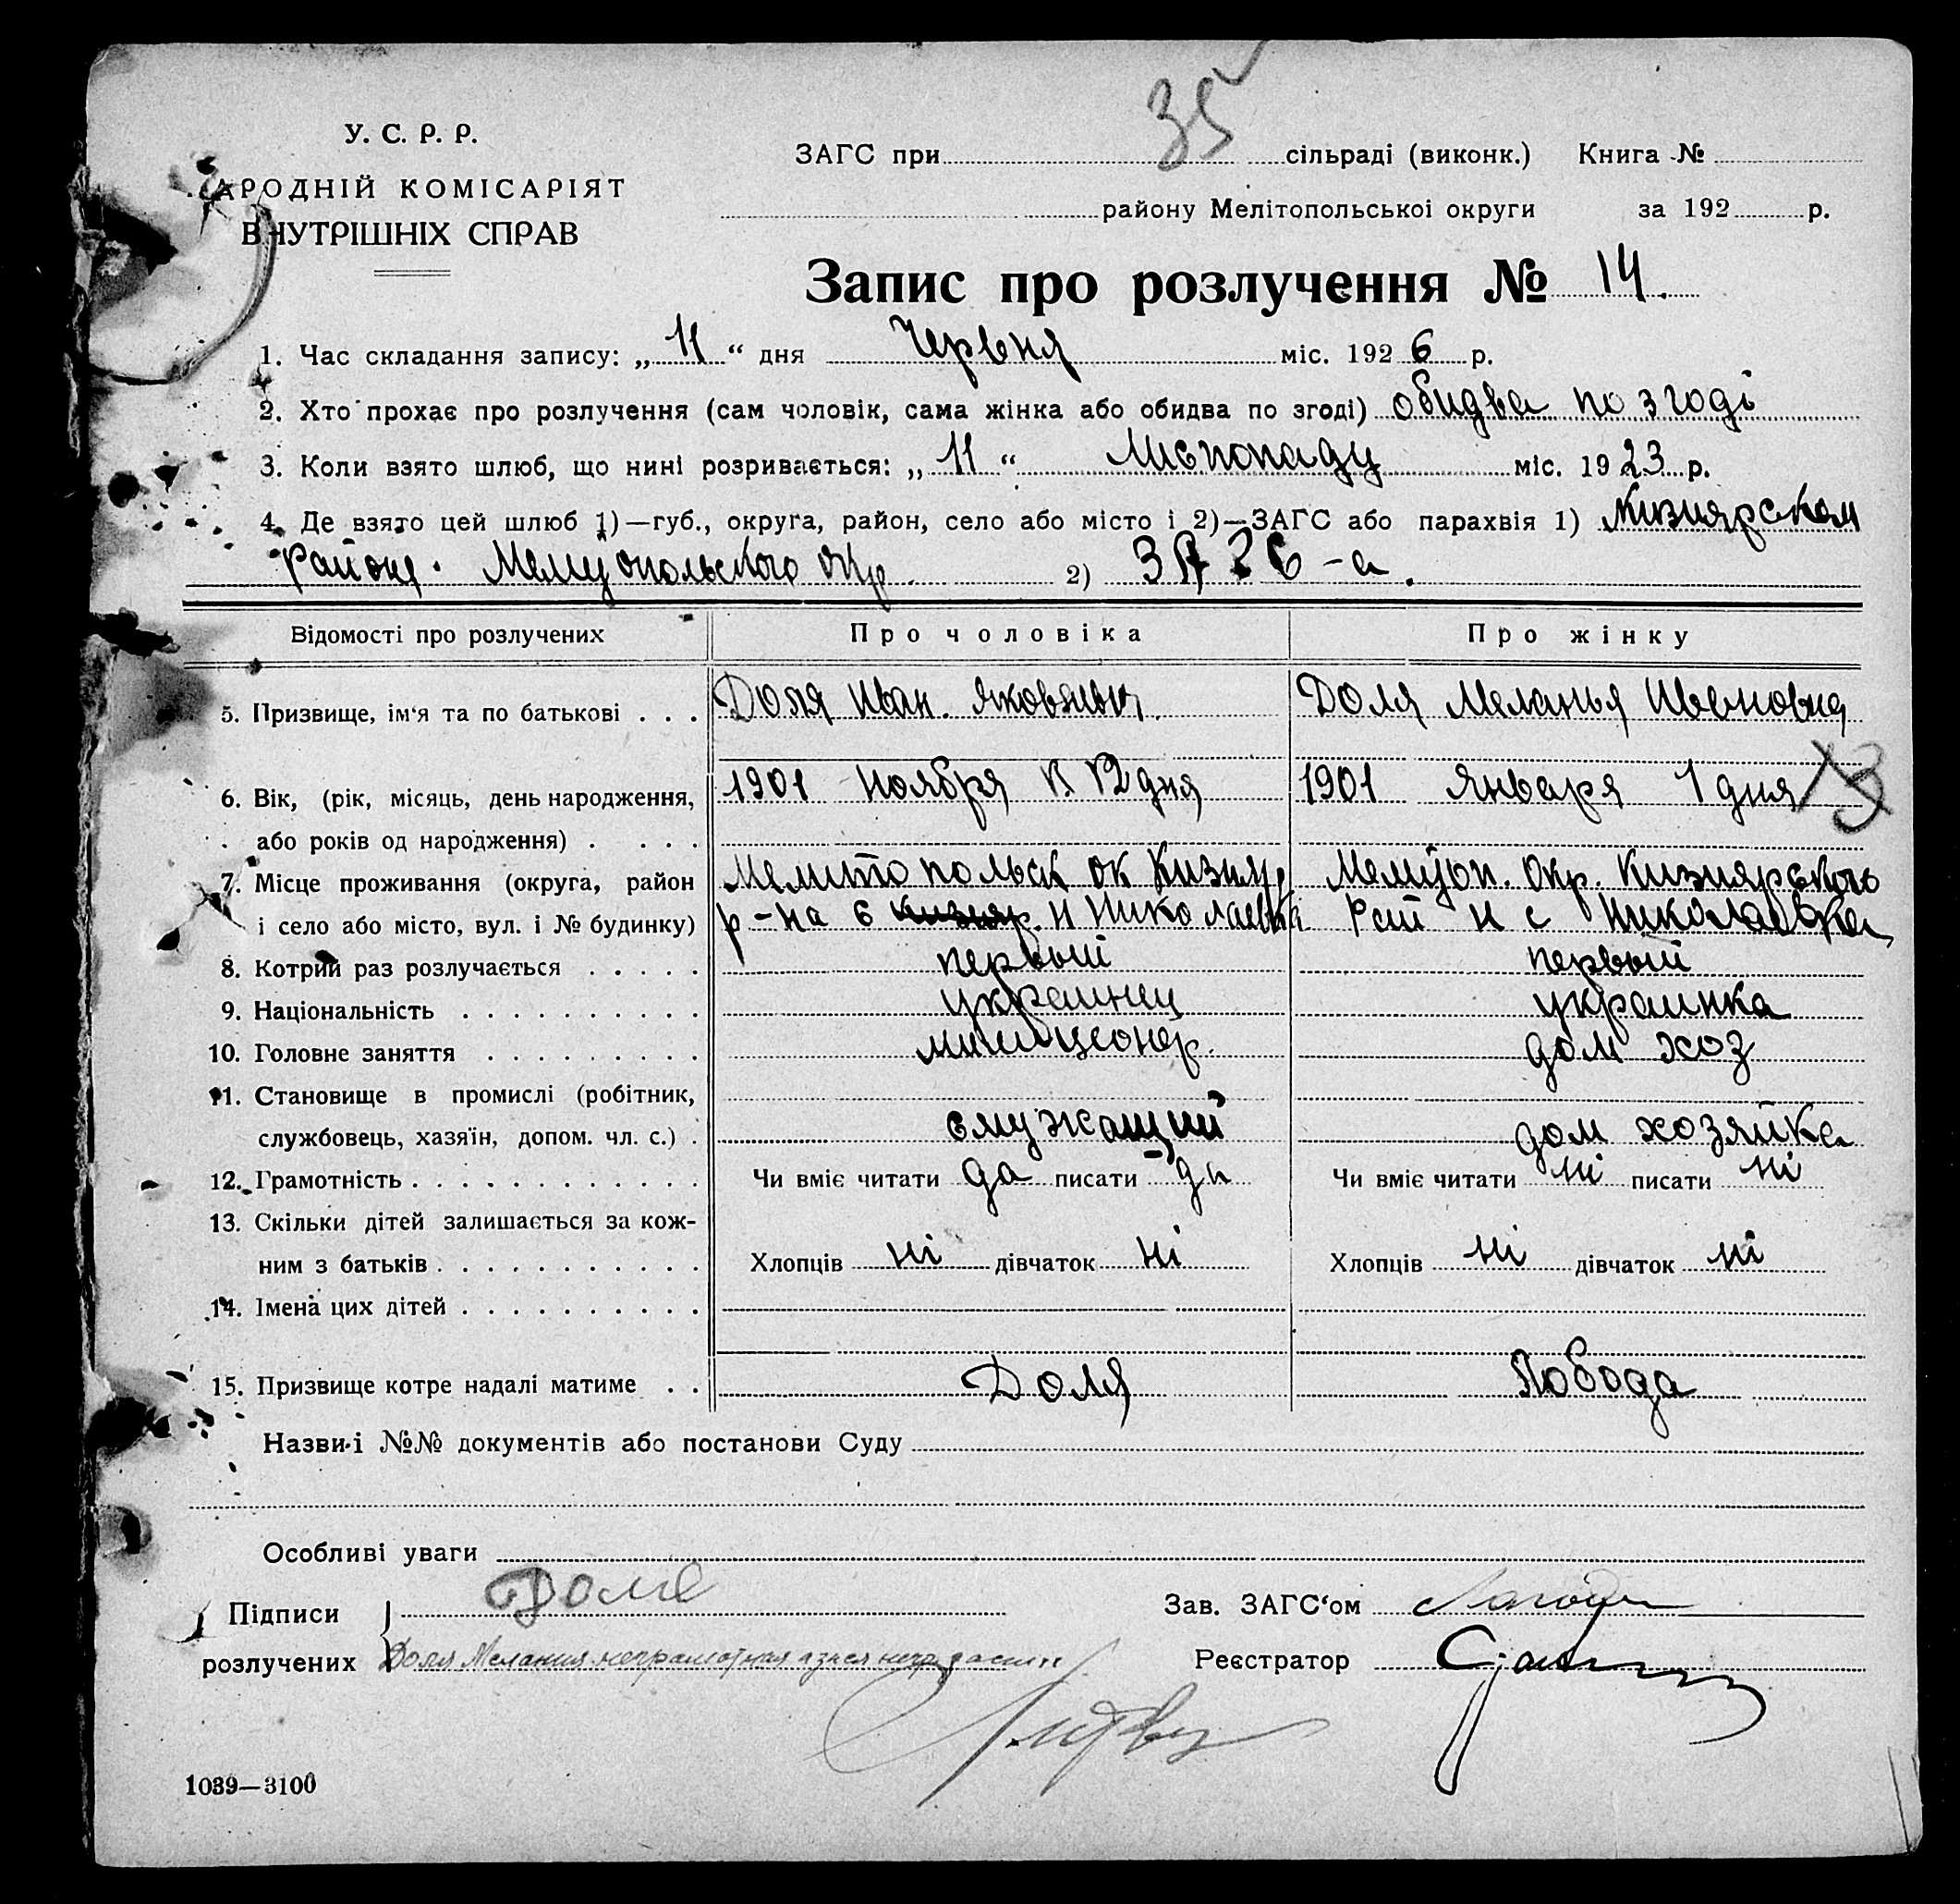 35
У. С. Р. Р.
АРОДНІЙ КОМІСАРІЯТ
ВНУТРІШНІХ СПРАВ
ЗАГС при сільраді (виконк.) Книга №
району Мелітопольської округи за 192 р.
Запис про розлучення № 14.
1. Час складання запису: „ 11 “ дня Червня міс. 192 6 р.
2. Хто прохає про розлучення (сам чоловік, сама жінка або обидва по згоді) обидва по згоді
3. Коли взято шлюб, що нині розривається: „ 11 “ Листопаду міс. 19 23 р.
4. Де взято цей шлюб 1)—губ., округа, район, село або місто і 2)—ЗАГС або парахвія 1) Кизиярском
районе. Мелитопольского окр. 2)
Відомості про розлучених Про чоловіка Про жінку
5. Призвище, ім‘я та по батькові . . . Доля Иван. Яковлевич. Доля Меланья
6. Вік, (рік, місяць, день народження, 1901 Ноября 12 дня 1901 Января 1 дня
або років од народження) . . . . .
7. Місце проживання (округа, район Мелитопольск ок Кизияр. Мелитоп. Окр. Кизиярского
і село або місто, вул. і № будинку) р-на с Кизияр. Н Николаевка Рай Н с Николаевка
8. Котрий раз розлучається . . . . . первый первый
9. Національність . . . . . . . . . . украинец украинка
10. Головне заняття . . . . . . . . . милиционер. дом хоз
11. Становище в промислі (робітник,
службовець, хазяїн, допом. чл. с.) . служащий дом хозяйка
12. Грамотність . . . . . . . . . . . . Чи вміє читати да писати да Чи вміє читати ні писати ні
13. Скільки дітей залишається за кож-
ним з батьків . . . . . . . . . . . Хлопців ні дівчаток ні Хлопців ні дівчаток ні
14. Імена цих дітей . . . . . . . . . .
15. Призвище котре надалі матиме . . Доля Лобода
Назви і №№ документів або постанови Суду
Особливі уваги
Підписи Доля Зав. ЗАГС‘ом
розлучених Доля Мелания неграмотная Реєстратор
1039—3100